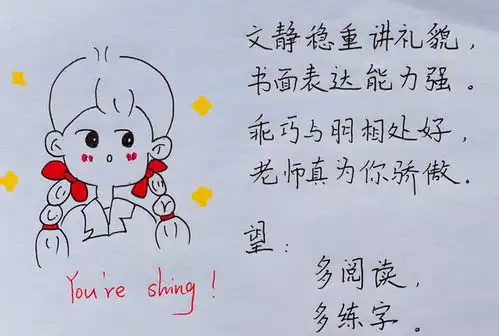 文静稳重讲礼貌，
书面表达能力强。
乖巧与朋相处好，
老师真为你骄傲。
望：
多阅读，
多练字。
You're shing!